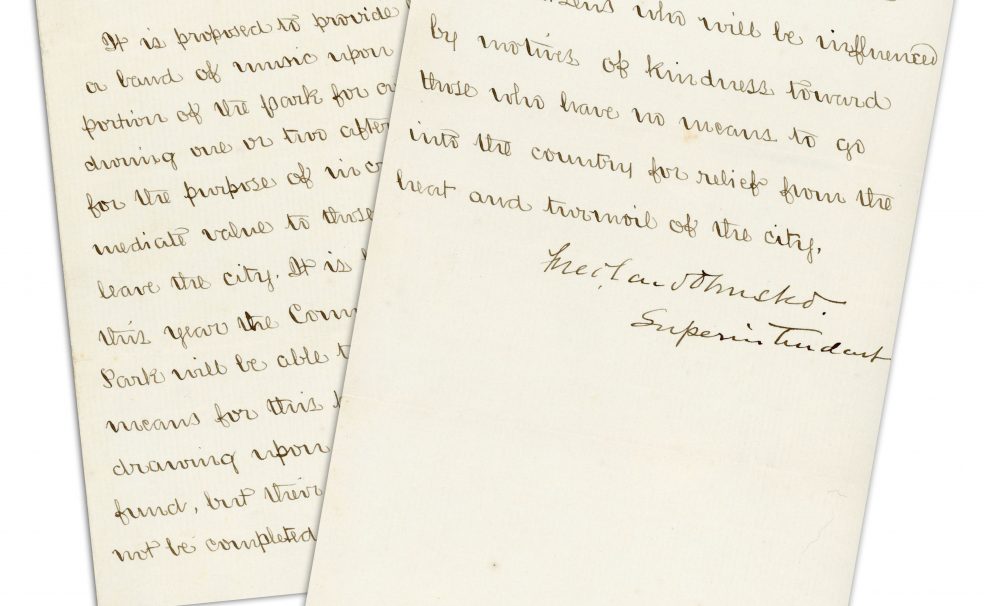 It is proposed to provide
a band of music upon
portion of the park for
during one or two after
for the purpose of inc
mediate value to those
leave the city. It is
this year the Com
Park will be able t
means for this
drawing upon
fund, but their
not be completed
who will be influenced
by motives of kindness toward
those who have no means to go
into the country for relief from the
heat and turmoil of the city.
Fred. Law Olmsted.
Superintendent